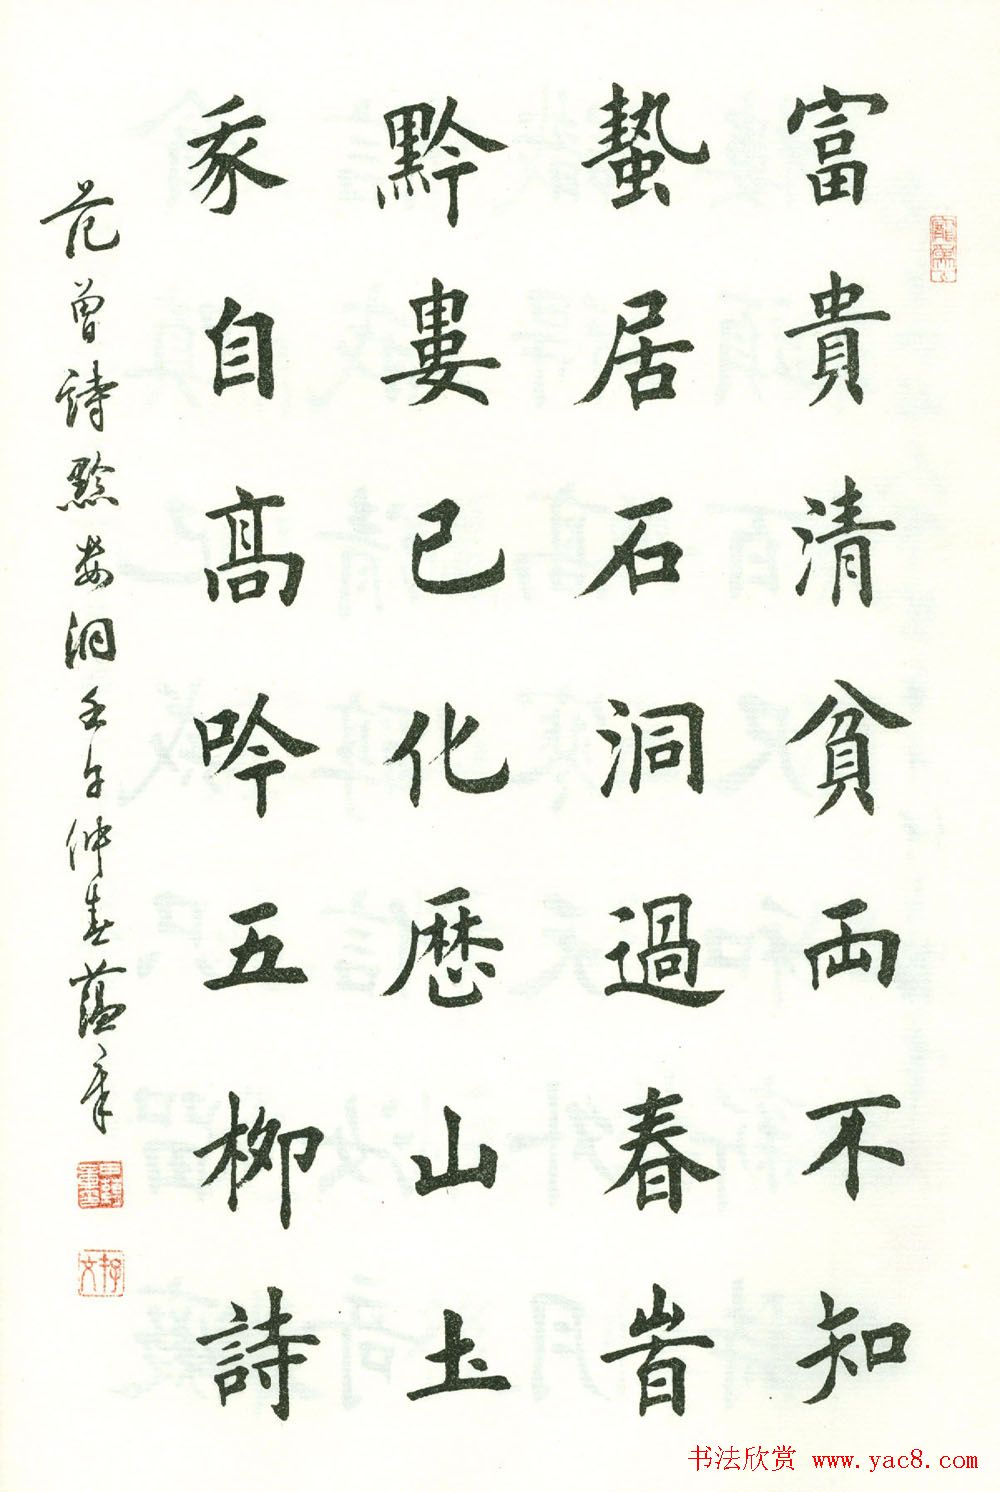 富貴清貧両不知
蟄居石洞過春旹
黔婁已化歷山圡
我自髙吟五柳詩
范曾詩黔婁洞壬午仲春蘊章
书法欣赏 www.yac8.com